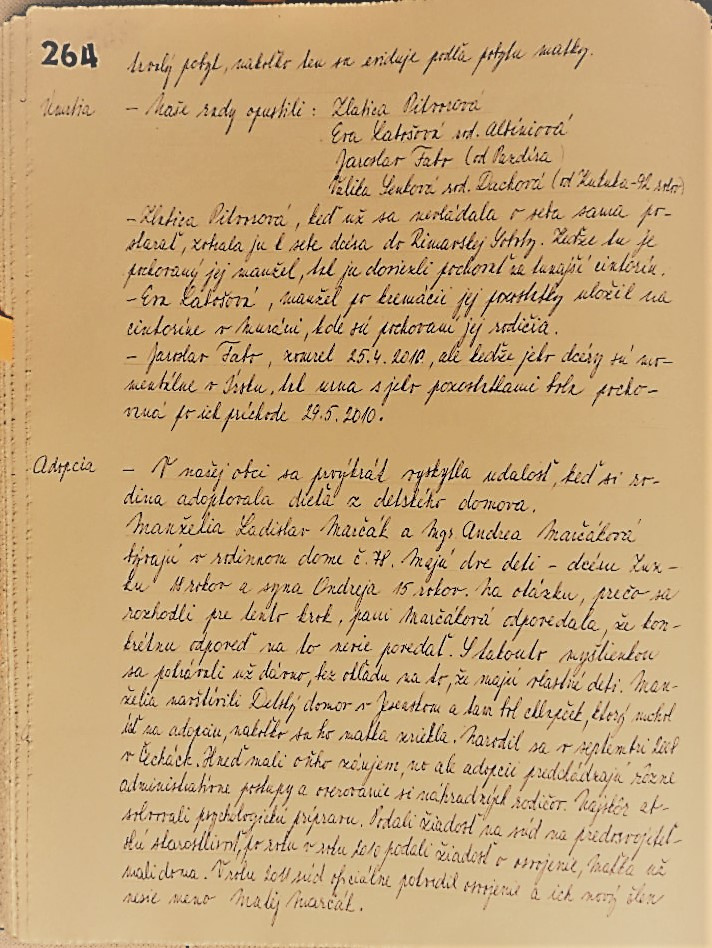 264
trvalý pobyt, nakoľko ten sa eviduje podľa pobytu matky.
Úmrtia - Naše rady opustili: Zlatica Pitvorová
Eva Latošová rod. Albíniová
Jaroslav Fabo (od Pazdíra)
Valika Senková rod. Duchová (od Kutuka-92 rokov)
- Zlatica Pitvorová, keď už sa nevládala o seba sama po-
starať, zobrala ju k sebe dcéra do Rimavskej Soboty. Keďže tu je
pochovaný jej manžel, tak ju doviezli pochovať na tunajší cintorín.
- Eva Latošová, manžel po kremácii jej pozostatky uložil na
cintoríne v Muráni, kde sú pochovaní jej rodičia.
- Jaroslav Fabo, zomrel 25.4.2010, ale keďže jeho dcéry sú mo-
mentálne v Írsku, tak urna s jeho pozostatkami bola pocho-
vaná po ich príchode 29.5.2010.
Adopcia - V našej obci sa prvýkrát vyskytla udalosť, keď si ro-
dina adoptovala dieťa z detského domova.
Manželia Ladislav Marčák a Mgr. Andrea Marčáková
bývajú v rodinnom dome č. 78. Majú dve deti - dcéru Zuz-
ku 18 rokov a syna Ondreja 15 rokov. Na otázku, prečo sa
rozhodli pre tento krok, pani Marčáková odpovedala, že kon-
krétnu odpoveď na to nevie povedať. S takouto myšlienkou
sa pohrávali už dávno, bez ohľadu na to, že majú vlastné deti. Man-
želia navštívili Detský domov v Jesenskom a tam bol chlapček, ktorý mohol
ísť na adopciu, nakoľko sa ho matka zriekla. Narodil sa v septembri 2008
v Čechách. Hneď mali oňho záujem, no ale adopcii predchádzajú rôzne
administratívne postupy a overovanie si náhradných rodičov. Najskôr ab-
solvovali psychologickú prípravu. Podali žiadosť na súd na predosvojiteľ-
skú starostlivosť, po roku v roku 2010 podali žiadosť o osvojenie, Matka už
mali doma. V roku 2011 súd oficiálne potvrdil osvojenie a ich nový člen
nesie meno Matej Marčák.